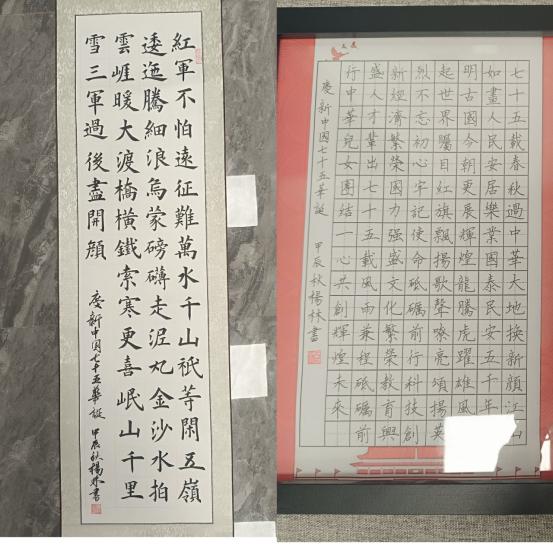 紅軍不怕遠征難萬水千山祇等閑五嶺
逶迤騰細浪烏蒙磅礴走泥丸金沙水拍
雲崕暖大渡橋橫鐵索寒更喜岷山千里
雪三軍過後盡開顏
慶新中国七十五華誕 甲辰秋楊林書
七十五載春秋過中華大地換新顏江山
如畫人民安居樂業國泰民安五千年
明古國今朝更展輝煌龍騰虎躍雄風
起世界矚目紅旗飄揚歌聲嘹亮頌揚英
烈不忘初心牢記使命砥礪前行科技創
新經濟繁榮國力强盛文化繁榮教育興
盛人才輩出七十五載風雨兼程砥礪前
行中華兒女團結一心共創輝煌未來
慶新中國七十五華誕 甲辰秋楊林書